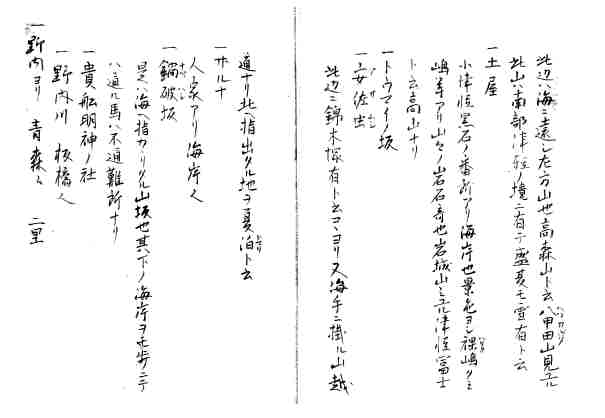 此辺ハ海ニ遠し左方山也高森山ト云八甲田山見ユル
此山ハ南部津軽ノ境ニ有テ盛夏モ雪有ト云
一土屋
小津軽黒石ノ番所アリ海岸也景色ヨシ裸嶋クミ
嶋等アリ山々ノ岩石奇也岩城山ミユル津軽冨士
ト云高山ナリ
一トウマイノ坂
一安佐虫
此辺ニ錦木塚有ト云コヽヨリ又海手ニ掛ル山越
道ナリ北ヘ指出タル地ヲ夏泊ト云
一ホルナ
人家アリ海岸ヘ
一鍋破坂
是ハ海ヘ指カヽリタル山坂也其下ノ海岸ヲモ歩ニテ
ハ通ル馬ハ不通難所ナリ
一貴舩明神ノ社
一野内川 板橋ヘ
一野内ヨリ 青森ヘ 二里